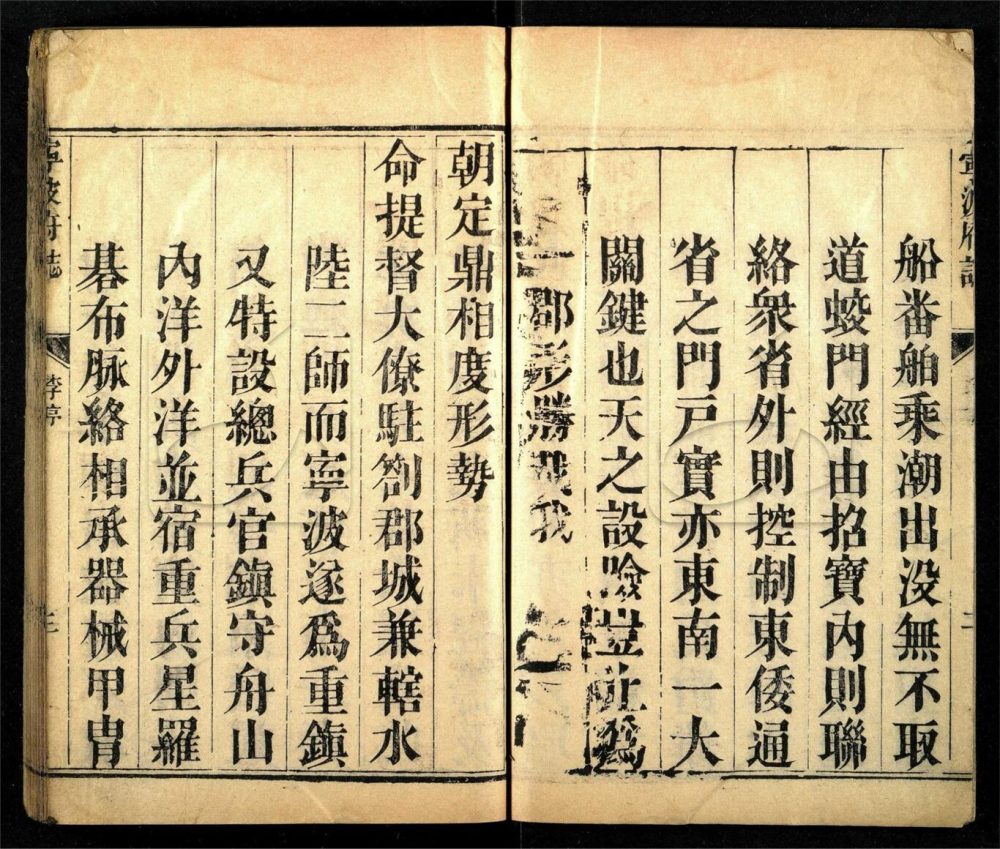 船番舶乘潮出没無不取
道蛟門經由招寶內則聯
絡衆省外則控制東倭逼
省之門戸實亦東南一大
關鍵也天之設險豈止爲
一郡形勝哉我
朝定鼎相度形勢
命提督大僚駐劄郡城兼轄水
陸二師而寧波遂爲重鎮
又特設總兵官鎮守舟山
內洋外洋並宿重兵星羅
碁布脉絡相承器械甲胄
寧波府誌
李序
三